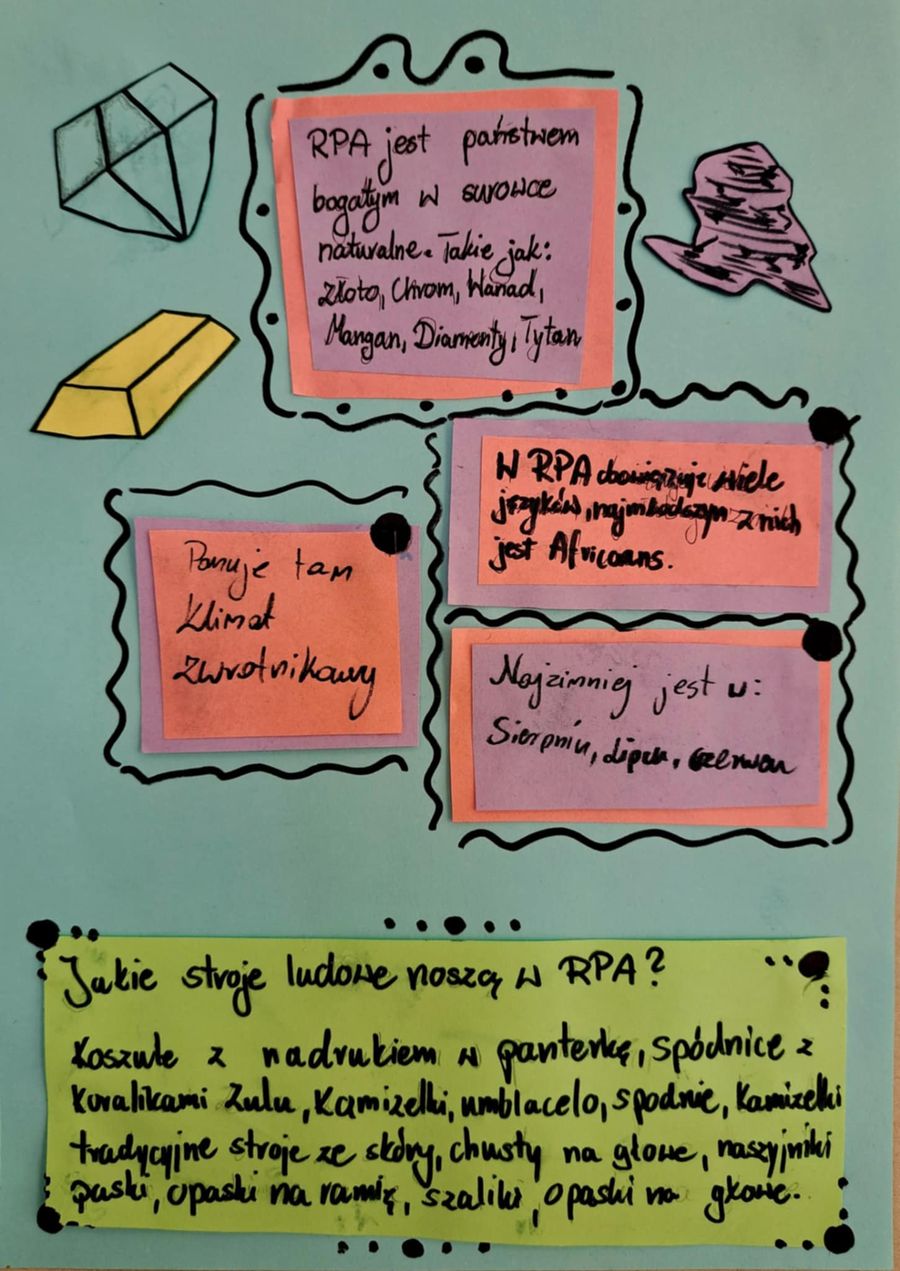 RPA jest państwem
bogatym w surowce
naturalne. Takie jak:
Złoto, Chrom, Wanad,
Mangan, Diamenty, Tytan
W RPA obowiązuje wiele
języków, najmłodszym z nich
jest Africaans.
Panuje tam
klimat
zwrotnikowy
Najzimniej jest w:
Sierpniu, Lipcu, czerwcu
Jakie stroje ludowe noszą w RPA?
Koszule z nadrukiem w panterkę, spódnice z
koralikami Zulu, Kamizelki, umblacelo, spodnie, kamizelki
tradycyjne stroje ze skóry, chusty na głowe, naszyjniki
paski, opaski na ramię, szaliki, opaski na głowe.